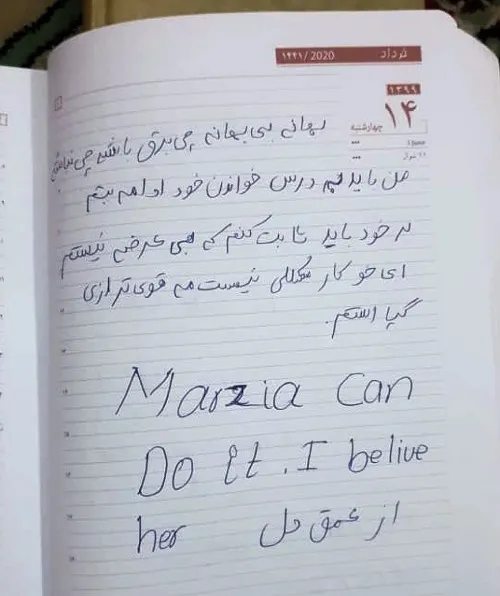 خرداد
1441/2020
۱۳۹۹
۱۴
چهارشنبه
3 June
بهانه بی بهانه چی برق باشه چی نباشه
من باید به درس خواندن خود ادامه بتم
به خود باید ثابت کنم که بی عرضه نیستم
ای خو کار مشکلی نیست مه قوی تر ازی
گپا استم.
Marzia Can
Do It. I belive
her از عمق دل